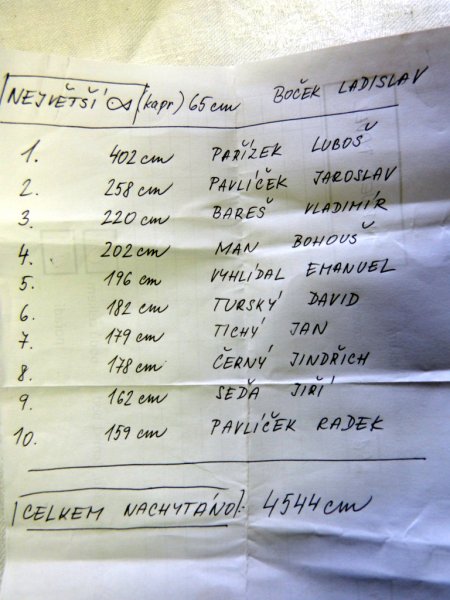 NEJVĚTŠÍ (kapr) 65 cm BOČEK LADISLAV
1. 402 cm PAŘÍZEK LUBOŠ
2. 258 cm PAVLÍČEK JAROSLAV
3. 220 cm BAREŠ VLADIMÍR
4. 202 cm MAN BOHOUŠ
5. 196 cm VYHLÍDAL EMANUEL
6. 182 cm TURSKÝ DAVID
7. 179 cm TICHÝ JAN
8. 178 cm ČERNÝ JINDŘICH
9. 162 cm SEĎA JIŘÍ
10. 159 cm PAVLÍČEK RADEK
CELKEM NACHYTÁNO: 4544 cm